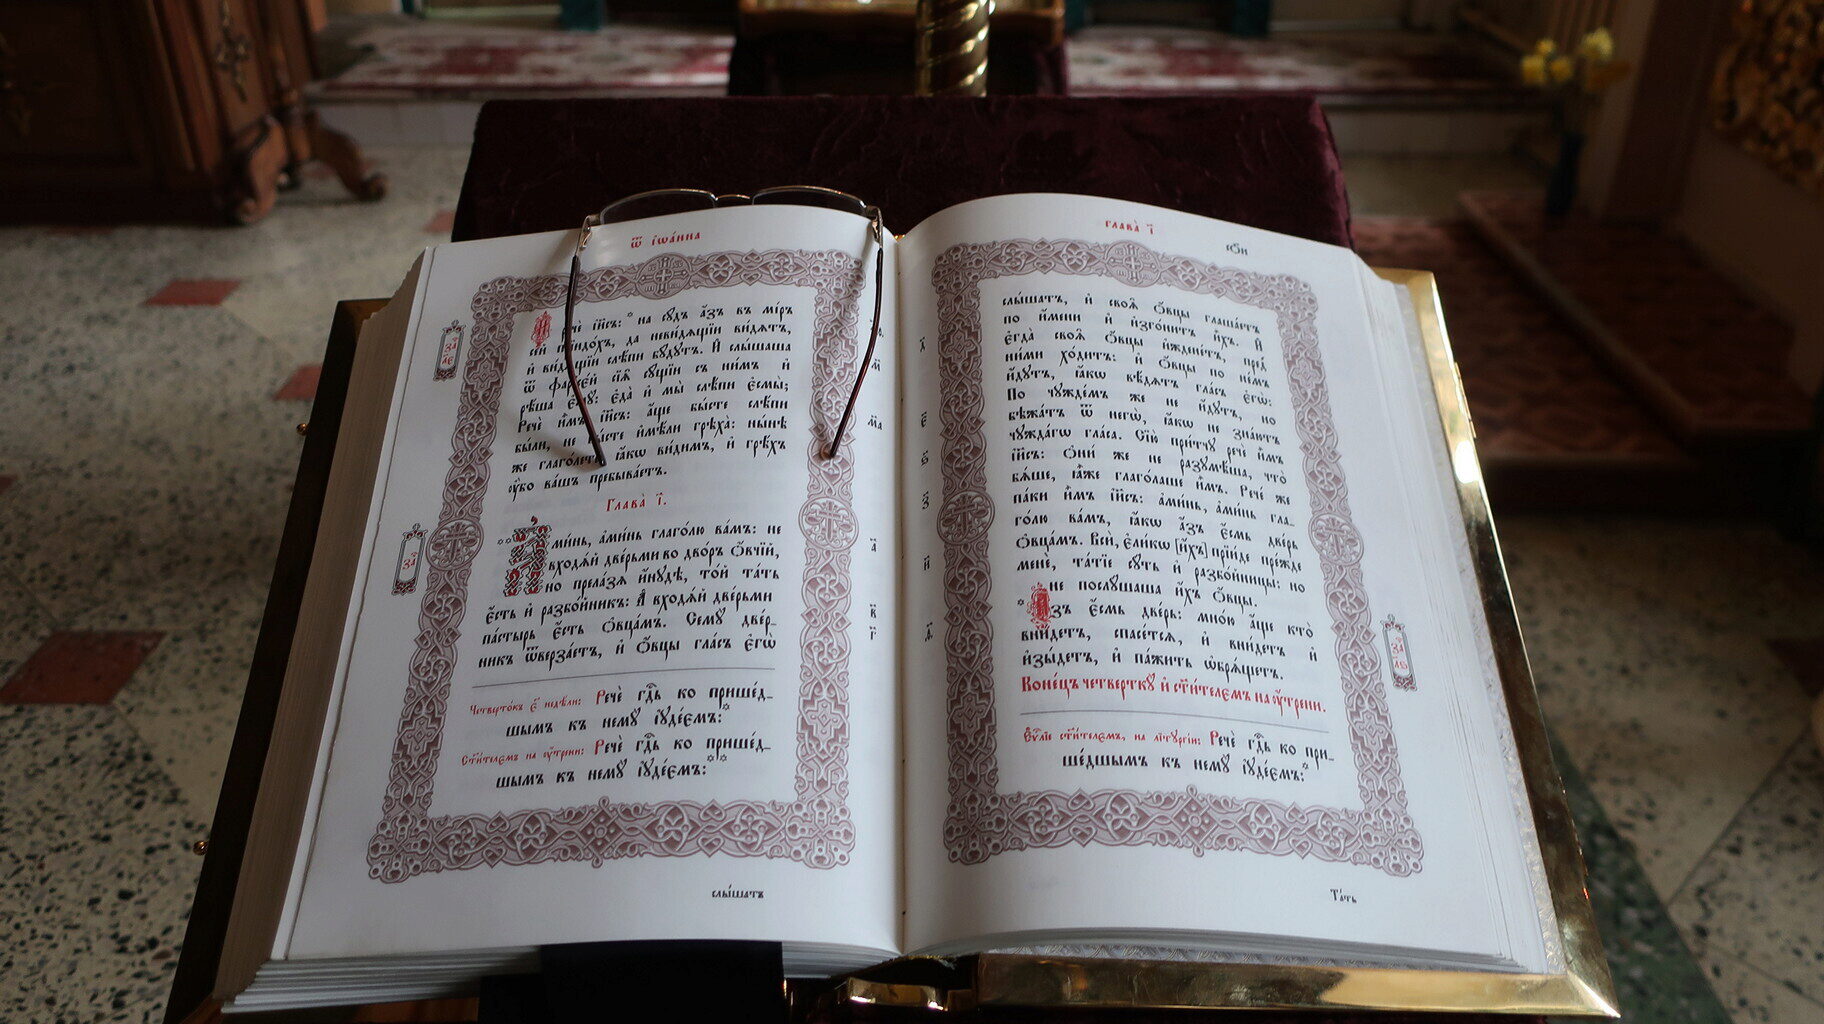 Ѿ іѡа́нна
Речѐ і҆и҃съ: * на сꙋ́дъ а҆́зъ въ мі́ръ
се́й прїидо́хъ, да неви́дѧщїи ви́дѧтъ,
и҆ ви́дѧщїи слѣ́пи бꙋ́дꙋтъ. И҆ слы́шаша
ѿ фарїсє́й сїѧ̑ сꙋ́щїи съ ни́мъ и҆
рѣ́ша є҆мꙋ̀: є҆да̀ и҆ мы̀ слѣ́пи є҆смы̀;
Речѐ и҆̀мъ і҆и҃съ: а҆́ще бы́сте слѣ́пи
бы́ли, не бы́сте и҆мѣ́ли грѣха̀: ны́нѣ
же глаго́лете, ꙗ҆́кѡ ви́димъ, и҆ грѣ́хъ
ᲂу҆̀бо ва́шъ пребыва́етъ.
Глава̀ і҃.
А҆ми́нь, а҆ми́нь глаго́лю ва́мъ: не
входѧ́й дверьмѝ во дво́ръ ѻ҆́вчїй,
но прела́зѧ и҆нꙋ́дѣ, то́й та́ть
є҆́сть и҆ разбо́йникъ: А҆ входѧ́й дверьмѝ
па́стырь є҆́сть ѻ҆вца́мъ. Семꙋ̀ две́р_
никъ ѿверза́етъ, и҆ ѻ҆́вцы гла́съ є҆гѡ̀
Четверто́къ є҃ недѣ́ли: Речѐ гдⷭ҇ь ко прише́д_
шымъ къ немꙋ̀ і҆ꙋде́ємъ:*
Ст҃и́телємъ на ᲂу҆́трени: Речѐ гдⷭ҇ь ко прише́д_
шымъ къ немꙋ̀ і҆ꙋде́ємъ:*
слы́шатъ
Глава̀ і҃
слы́шатъ, и҆ своѧ̑ ѻ҆́вцы глаша́етъ
по и҆́мени и҆ и҆зго́нитъ и҆̀хъ. И҆
є҆гда̀ своѧ̑ ѻ҆́вцы и҆ждене́тъ, пред̾
ни́ми хо́дитъ: и҆ ѻ҆́вцы по не́мъ
и҆́дꙋтъ, ꙗ҆́кѡ вѣ́дѧтъ гла́съ є҆гѡ̀:
По чꙋжде́мъ же не и҆́дꙋтъ, но
бѣжа́тъ ѿ негѡ̀, ꙗ҆́кѡ не зна́ютъ
чꙋжда́гѡ гла́са. Сїю̀ при́тчꙋ речѐ и҆̀мъ
і҆и҃съ: Ѻ҆ни́ же не разꙋмѣ́ша, что̀
бѧ́ше, ꙗ҆̀же глаго́лаше и҆̀мъ. Рече́ же
па́ки и҆̀мъ і҆и҃съ: а҆ми́нь, а҆ми́нь гла_
го́лю ва́мъ, ꙗ҆́кѡ а҆́зъ є҆́смь две́рь
ѻ҆вца́мъ. Всѝ, є҆ли́кѡ [и҆́хъ] прїи́де пре́жде
менє̀, та́тїе сꙋ́ть и҆ разбо́йницы: но
не послꙋ́шаша и҆́хъ ѻ҆́вцы.
* А҆́зъ є҆́смь две́рь: мно́ю а҆́ще кто̀
вни́детъ, спасе́тсѧ, и҆ вни́детъ и҆
и҆зы́детъ, и҆ па́жить ѡ҆брѧ́щетъ.
Коне́цъ четверткꙋ̀ и҆ ст҃и́телємъ на ᲂу҆́трени.
Є҆ѵⷢ҇лїе ст҃и́телємъ, на літꙋргі́и: Речѐ гдⷭ҇ь ко при_
ше́дшымъ къ немꙋ̀ і҆ꙋде́ємъ:*
Та́ть